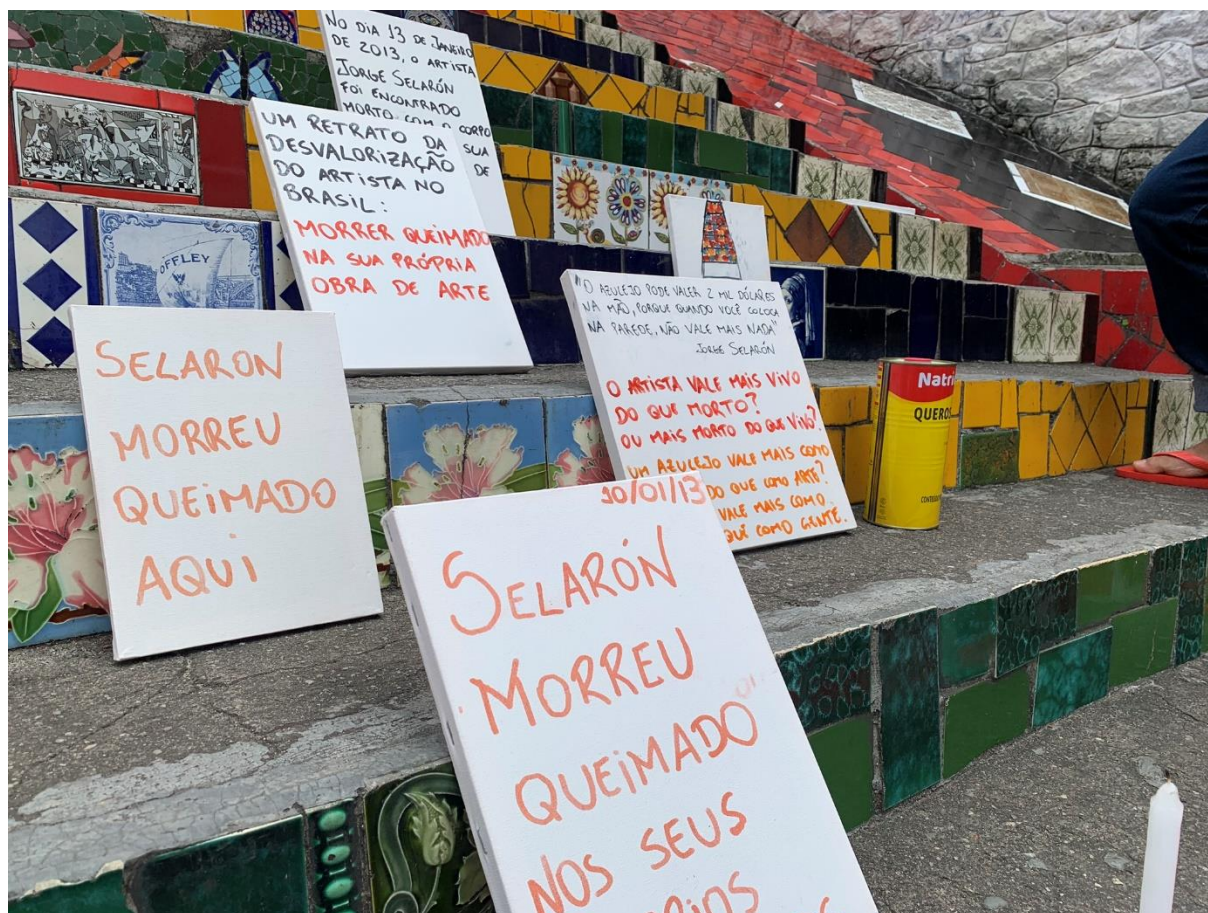 NO DIA 13 DE JANEIRO
DE 2013, O ARTISTA
JORGE SELARÓN
FOI ENCONTRADO
MORTO COM O CORPO
SUA
DE
UM RETRATO DA
DESVALORIZAÇÃO
DO ARTISTA NO
BRASIL:
MORRER QUEIMADO
NA SUA PRÓPRIA
OBRA DE ARTE
OFFLEY
"O AZULEJO PODE VALER 2 MIL DÓLARES
NA MÃO, PORQUE QUANDO VOCÊ COLOCA
NA PAREDE, NÃO VALE MAIS NADA"
JORGE SELARÓN
O ARTISTA VALE MAIS VIVO
DO QUE MORTO?
OU MAIS MORTO DO QUE VIVO?
UM AZULEJO VALE MAIS COMO
DO QUE COMO ARTE?
VALE MAIS COMO
AQUI COMO GENTE.
Natri
QUEROS
SELARON
MORREU
QUEIMADO
AQUI
10/01/13
SELARÓN
MORREU
QUEIMADO
NOS SEUS